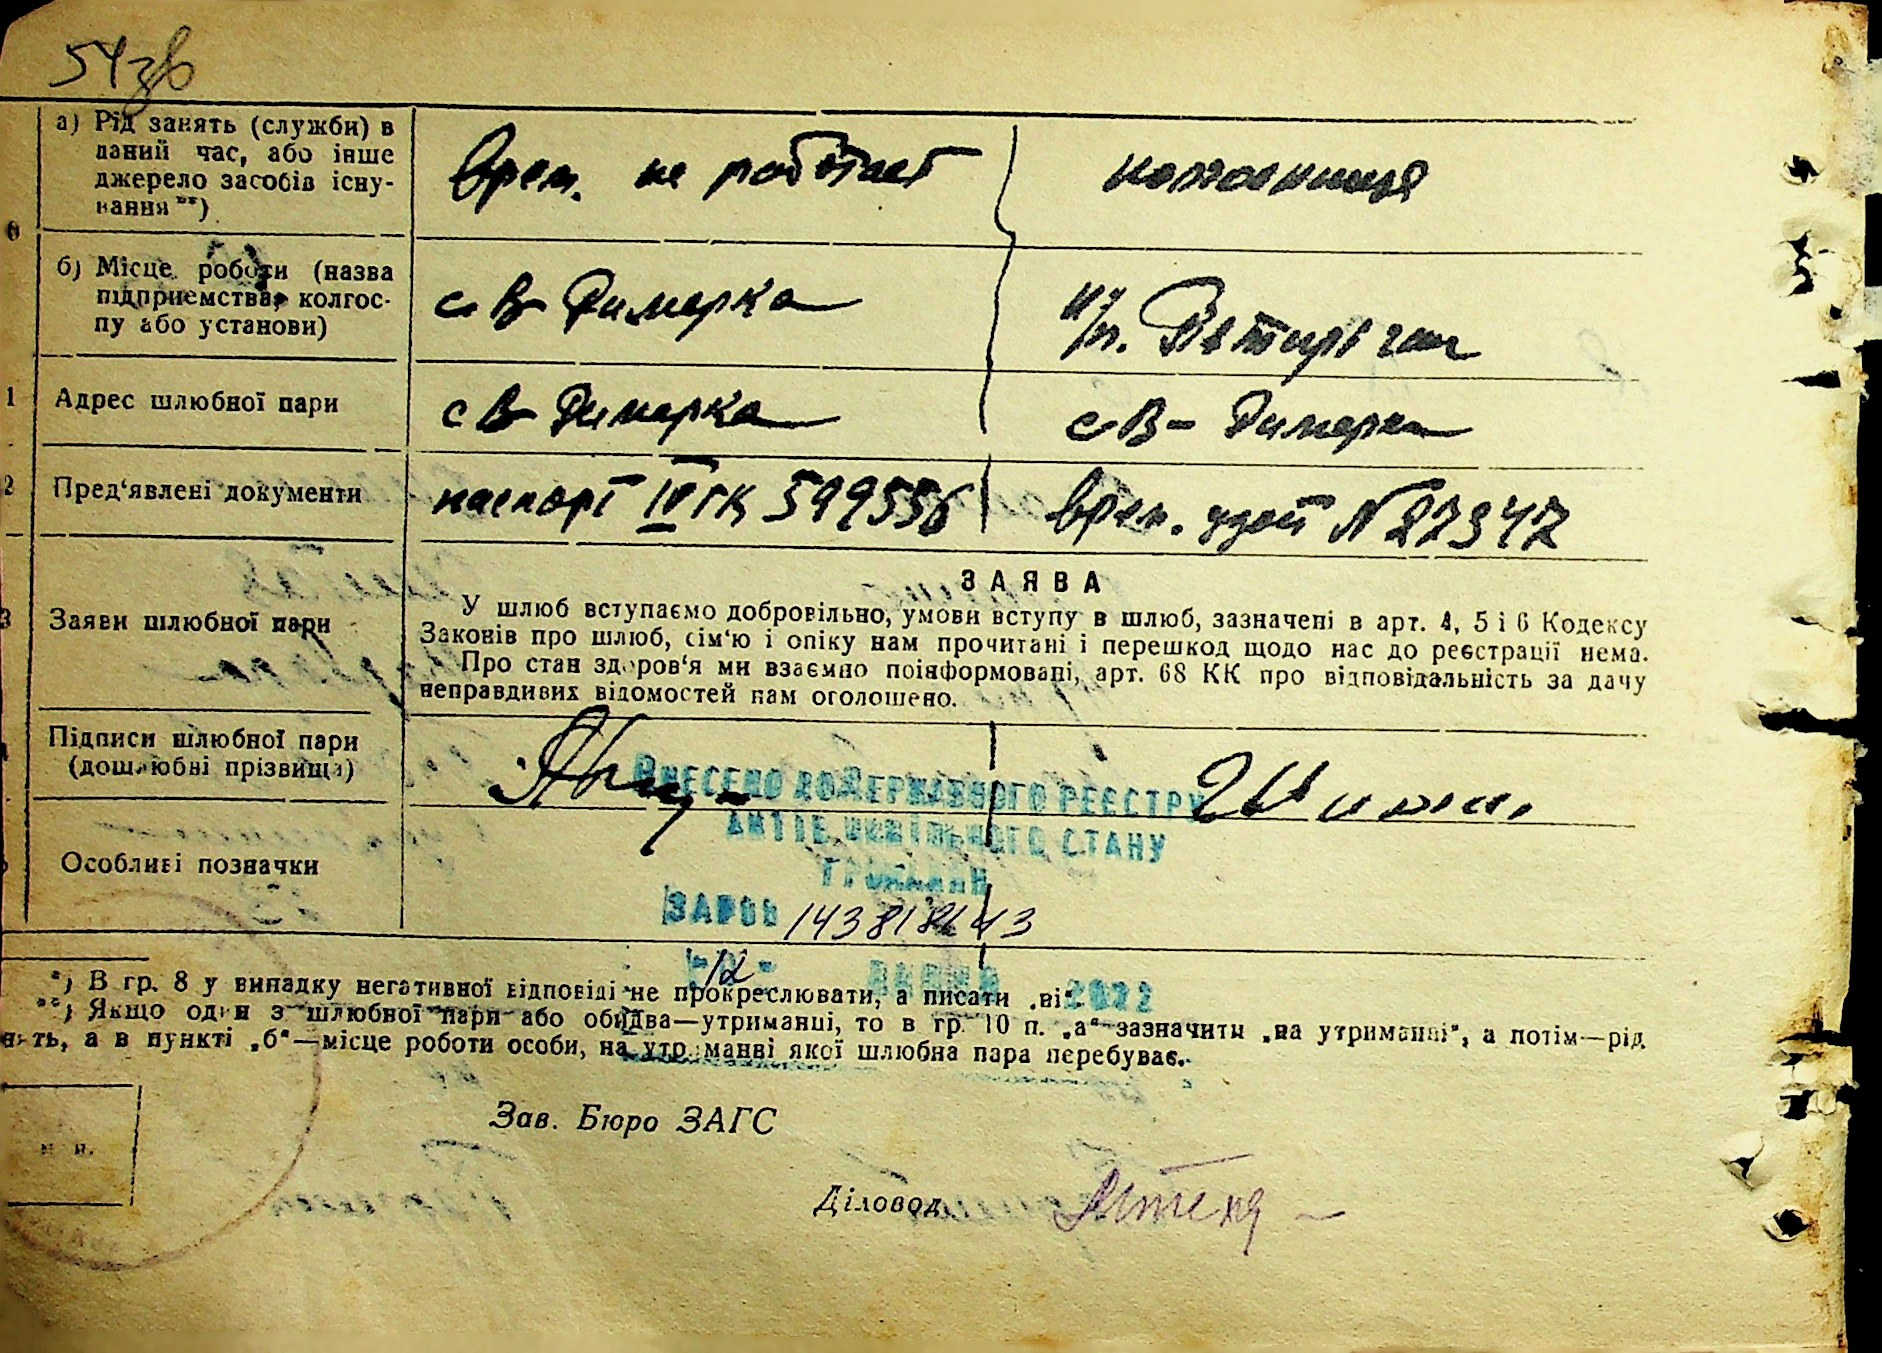 54зв
а) Рід занять (служби) в
даний час, або інше
джерело засобів існу-
вання **)
врем. не работает
колхозница
б) Місце роботи (назва
підприємства, колгос-
пу або установи)
с В Димерка
к/п.
1 Адрес шлюбної пари
с В Димерка
с В - Димерка
2 Пред'явлені документи
паспорт IV ГК 599556
врем. удост № 27347
3 Заяви шлюбної пари
ЗАЯВА
У шлюб вступаємо добровільно, умови вступу в шлюб, зазначені в арт. 4, 5 і 6 Кодексу
Законів про шлюб, сім'ю і опіку нам прочитані і перешкод щодо нас до реєстрації нема.
Про стан здоров'я ми взаємно поінформовані, арт. 68 КК про відповідальність за дачу
неправдивих відомостей нам оголошено.
Підписи шлюбної пари
(дошлюбні прізвища)
ВНЕСЕНО ДО ДЕРЖАВНОГО РЕЄСТРУ
АКТІВ ЦИВІЛЬНОГО СТАНУ
ГРОМАДЯН
Особливі позначки
ЗА № 00
12 2022
*) В гр. 8 у випадку негативної відповіді не прокреслювати, а писати „ні“.
**) Якщо один з шлюбної пари або обидва—утриманці, то в гр. 10 п. „а“ зазначити „на утриманні“, а потім—рід
нять, а в пункті „б“—місце роботи особи, на утриманні якої шлюбна пара перебуває.
Зав. Бюро ЗАГС
м. п.
Діловод